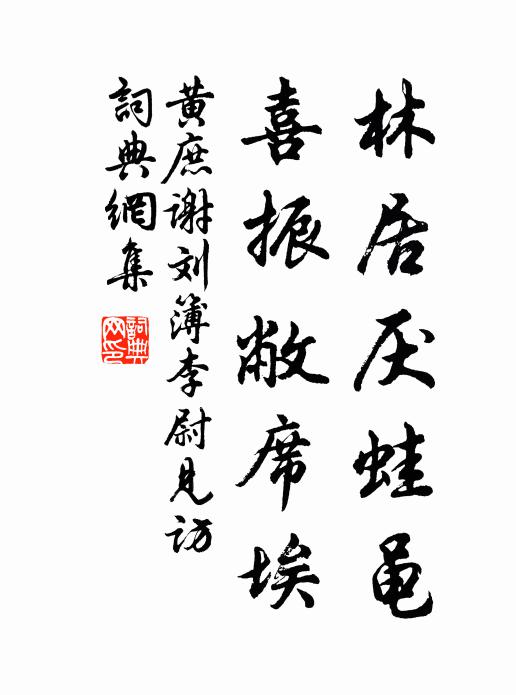 林居厌蛙黾
喜振敝席埃
黄庶谢刘簿李尉见访
詞典網集
詞典网印